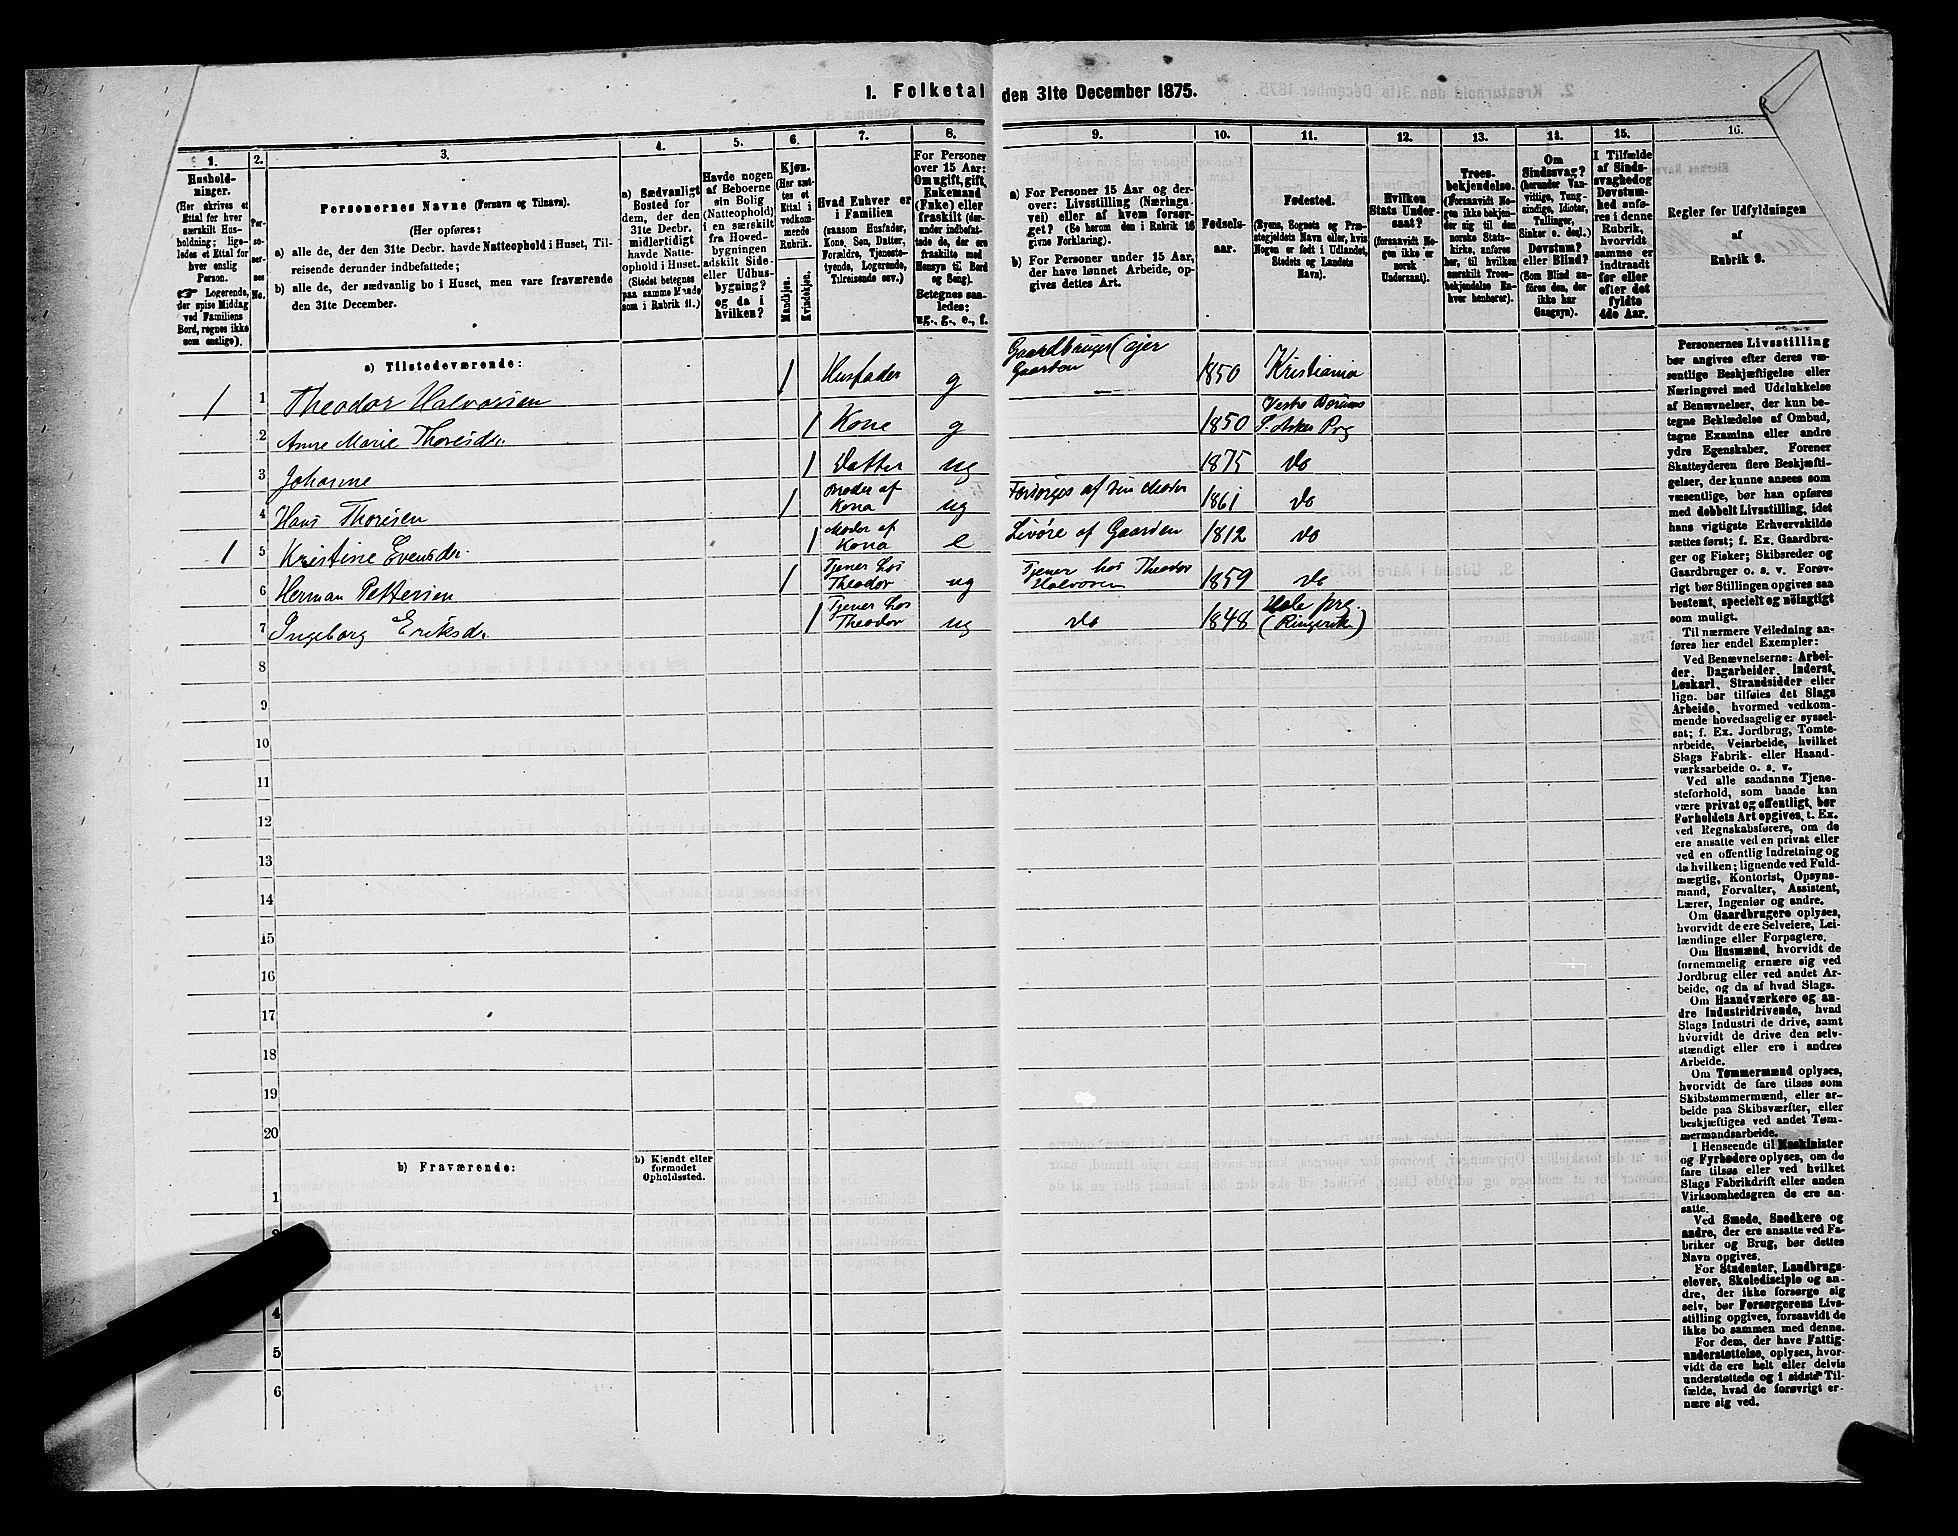 1. Folketal den 31te December 1875.
1.
Hushold-
ninger.
(Her skrives et
Ettal for hver
særskilt Hus-
holdning; lige-
ledes et Ettal for
hver enslig
Person.
☞ Logerende,
der spise Middag
ved Familiens
Bord, regnes ikke
som enslige).
2.
Per-
so-
ner-
nes
No.
3.
Personernes Navne (Fornavn og Tilnavn).
(Her opføres:
a) alle de, der den 31te Decbr. havde Natteophold i Huset, Til-
reisende derunder indbefattede;
b) alle de, der sædvanlig bo i Huset, men vare fraværende
den 31te December.
4.
a) Sædvanligt
Bosted for
dem, der den
31te Decbr.
midlertidigt
havde Natte-
ophold i Huset.
(Stedet betegnes
paa samme Maade
som i Rubrik 11.)
5.
Havde nogen
af Beboerne
sin Bolig
(Natteophold)
i en særskilt
fra Hoved-
bygningen
adskilt Side-
eller Udhus-
bygning?
og da i
hvilken?
6.
Kjøn.
(Her sæt-
tes et
Ettal i
vedkom-
mende
Rubrik.
Mandkjøn.
Kvindekjøn.
7.
Hvad Enhver er
i Familien
(saasom Husfader,
Kone, Søn, Datter,
Forældre, Tjeneste-
tyende, Logerende,
Tilreisende osv.)
8.
For Personer
over 15 Aar:
Om ugift, gift,
Enkemand
(Enke) eller
fraskilt (der-
under indbefat-
tede de, der ere
fraskilte med
Hensyn til Bord
og Seng).
Betegnes saa-
ledes:
ug., g., e., f.
9.
a) For Personer 15 Aar og der-
over: Livsstilling (Nærings-
vei) eller af hvem forsør-
get? (Se herom den i Rubrik 16
givne Forklaring).
b) For Personer under 15 Aar,
der have lønnet Arbeide, op-
gives dettes Art.
10.
Fødsels-
aar.
11.
Fødested.
(Byens, Sognets og Præ-
stegjeldets Navn eller, hvis
Nogen er født i Udlandet,
Stedets og Landets
Navn).
12.
Hvilken
Stats Under-
saat?
(forsaavidt No-
gen ikke er
norsk
Undersaat).
13.
Troes-
bekjendelse.
(Forsaavidt No-
gen ikke bekjen-
der sig til den
norske Stats-
kirke, anføres
her, til hvilken
særskilt Troes-
bekjendelse En-
hver henhører).
14.
Om
Sindssvag?
(herunder Van-
vittige, Tung-
sindige, Idioter,
Tullinger,
Sinker o. desl.)
Døvstum?
eller Blind?
(Som Blind an-
føres den, der
ikke har
Gangsyn).
15.
I Tilfælde
af Sinds-
svaghed og
Døvstum-
hed anfø-
res i denne
Rubrik,
hvorvidt
samme er
indtraadt
før efter det
fyldte
4de Aar.
16.
Regler for Udfyldningen
af
Rubrik 9.
a) Tilstedeværende:
1 1 Theodor Halvorsen 1 Husfader g Gaardbruger (ejer Gaarden 1850 Kristiania
2 Anne Marie Thoresdr. 1 Kone g 1850 Vestre Bærums S. Asker Prg
3 Johanne 1 Datter ug 1875 do
4 Hans Thoresen 1 Broder af Kona ug Forsørges af sin Moder 1861 do
1 5 Kristine Evensdr. 1 Moder af Kona e Livøre af Gaarden 1812 do
6 Herman Pettersen 1 Tjener hos Theodor ug Tjener hos Theodor Halvorsen 1859 do
7 Ingeborg Eriksdr. 1 Tjener hos Theodor ug do 1848 Hole prg. (Ringerike)
8
9
10
11
12
13
14
15
16
17
18
19
20
b) Fraværende:
b) Kjendt eller
formodet
Opholdssted.
1
4
5
6
Personernes Livsstilling
bør angives efter deres væ-
sentlige Beskjæftigelse eller
Næringsvei med Udelukkelse
af Benævnelser, der kun be-
tegne Beklædelse af Ombud,
tagne Examina eller andre
ydre Egenskaber. Forener
Skatteyderen flere Beskjæfti-
gelser, der kunne ansees som
væsentlige, bør han opføres
med dobbelt Livsstilling, idet
hans vigtigste Erhvervskilde
sættes først; f. Ex. Gaardbru-
ger og Fisker; Skibsreder og
Gaardbruger o. s. v. Forøv-
rigt bør Stillingen opgives saa
bestemt, specielt og nøiagtigt
som muligt.
Til nærmere Veiledning an-
føres her endel Exempler:
Ved Benævnelserne: Arbei-
der, Dagarbeider, Inderst,
Løskarl, Strandsidder eller
lign. bør tilføies det Slags
Arbeide, hvormed vedkom-
mende hovedsagelig er syssel-
sat; f. Ex. Jordbrug, Tomte-
arbeide, Veiarbeide, hvilket
Slags Fabrik- eller Haand-
værksarbeide o. s. v.
Ved alle saadanne Tjene-
steforhold, som baade kan
være privat og offentligt, bør
Forholdets Art opgives, t. Ex.
ved Regnskabsførere, om de
ere ansatte ved en privat eller
ved en offentlig Indretning og
da hvilken; lignende ved Fuld-
mægtig, Kontorist, Opsyns-
mand, Forvalter, Assistent,
Lærer, Ingeniør og andre.
Om Gaardbrugere oplyses,
hvorvidt de ere Selveiere, Lei-
lændinge eller Forpagtere.
Om Husmænd, hvorvidt de
fornemmelig ernære sig ved
Jordbrug eller ved andet Ar-
beide, og da af hvad Slags.
Om Haandværkere og an-
dre Industridrivende, hvad
Slags Industri de drive, samt
hvorvidt de drive den selv-
stændigt eller ere i andres
Arbeide.
Om Tømmermænd oplyses,
hvorvidt de fare tilsøs som
Skibstømmermænd, eller ar-
beide paa Skibsværfter, eller
beskjæftiges ved andet Tøm-
mermandsarbeide.
I Henseende til Maskinister
og Fyrbødere oplyses, om de
fare tilsøs eller ved hvilket
Slags Fabrikdrift eller anden
Virksomhedsgren de ere an-
satte.
Ved Smede, Snedkere og
andre, der ere ansatte ved Fa-
briker og Brug, bør dettes
Navn opgives.
For Studenter, Landbrugs-
elever, Skoledisciple og an-
dre, der ikke forsørge sig
selv, bør Forsørgerens Livs-
stilling opgives, forsaavidt de
ikke bo sammen med denne.
For dem, der have Fattig-
understøttelse, oplyses, hvor-
vidt de ere helt eller delvis
understøttede og i sidste Til-
fælde, hvad de forøvrigt er-
nære sig ved.